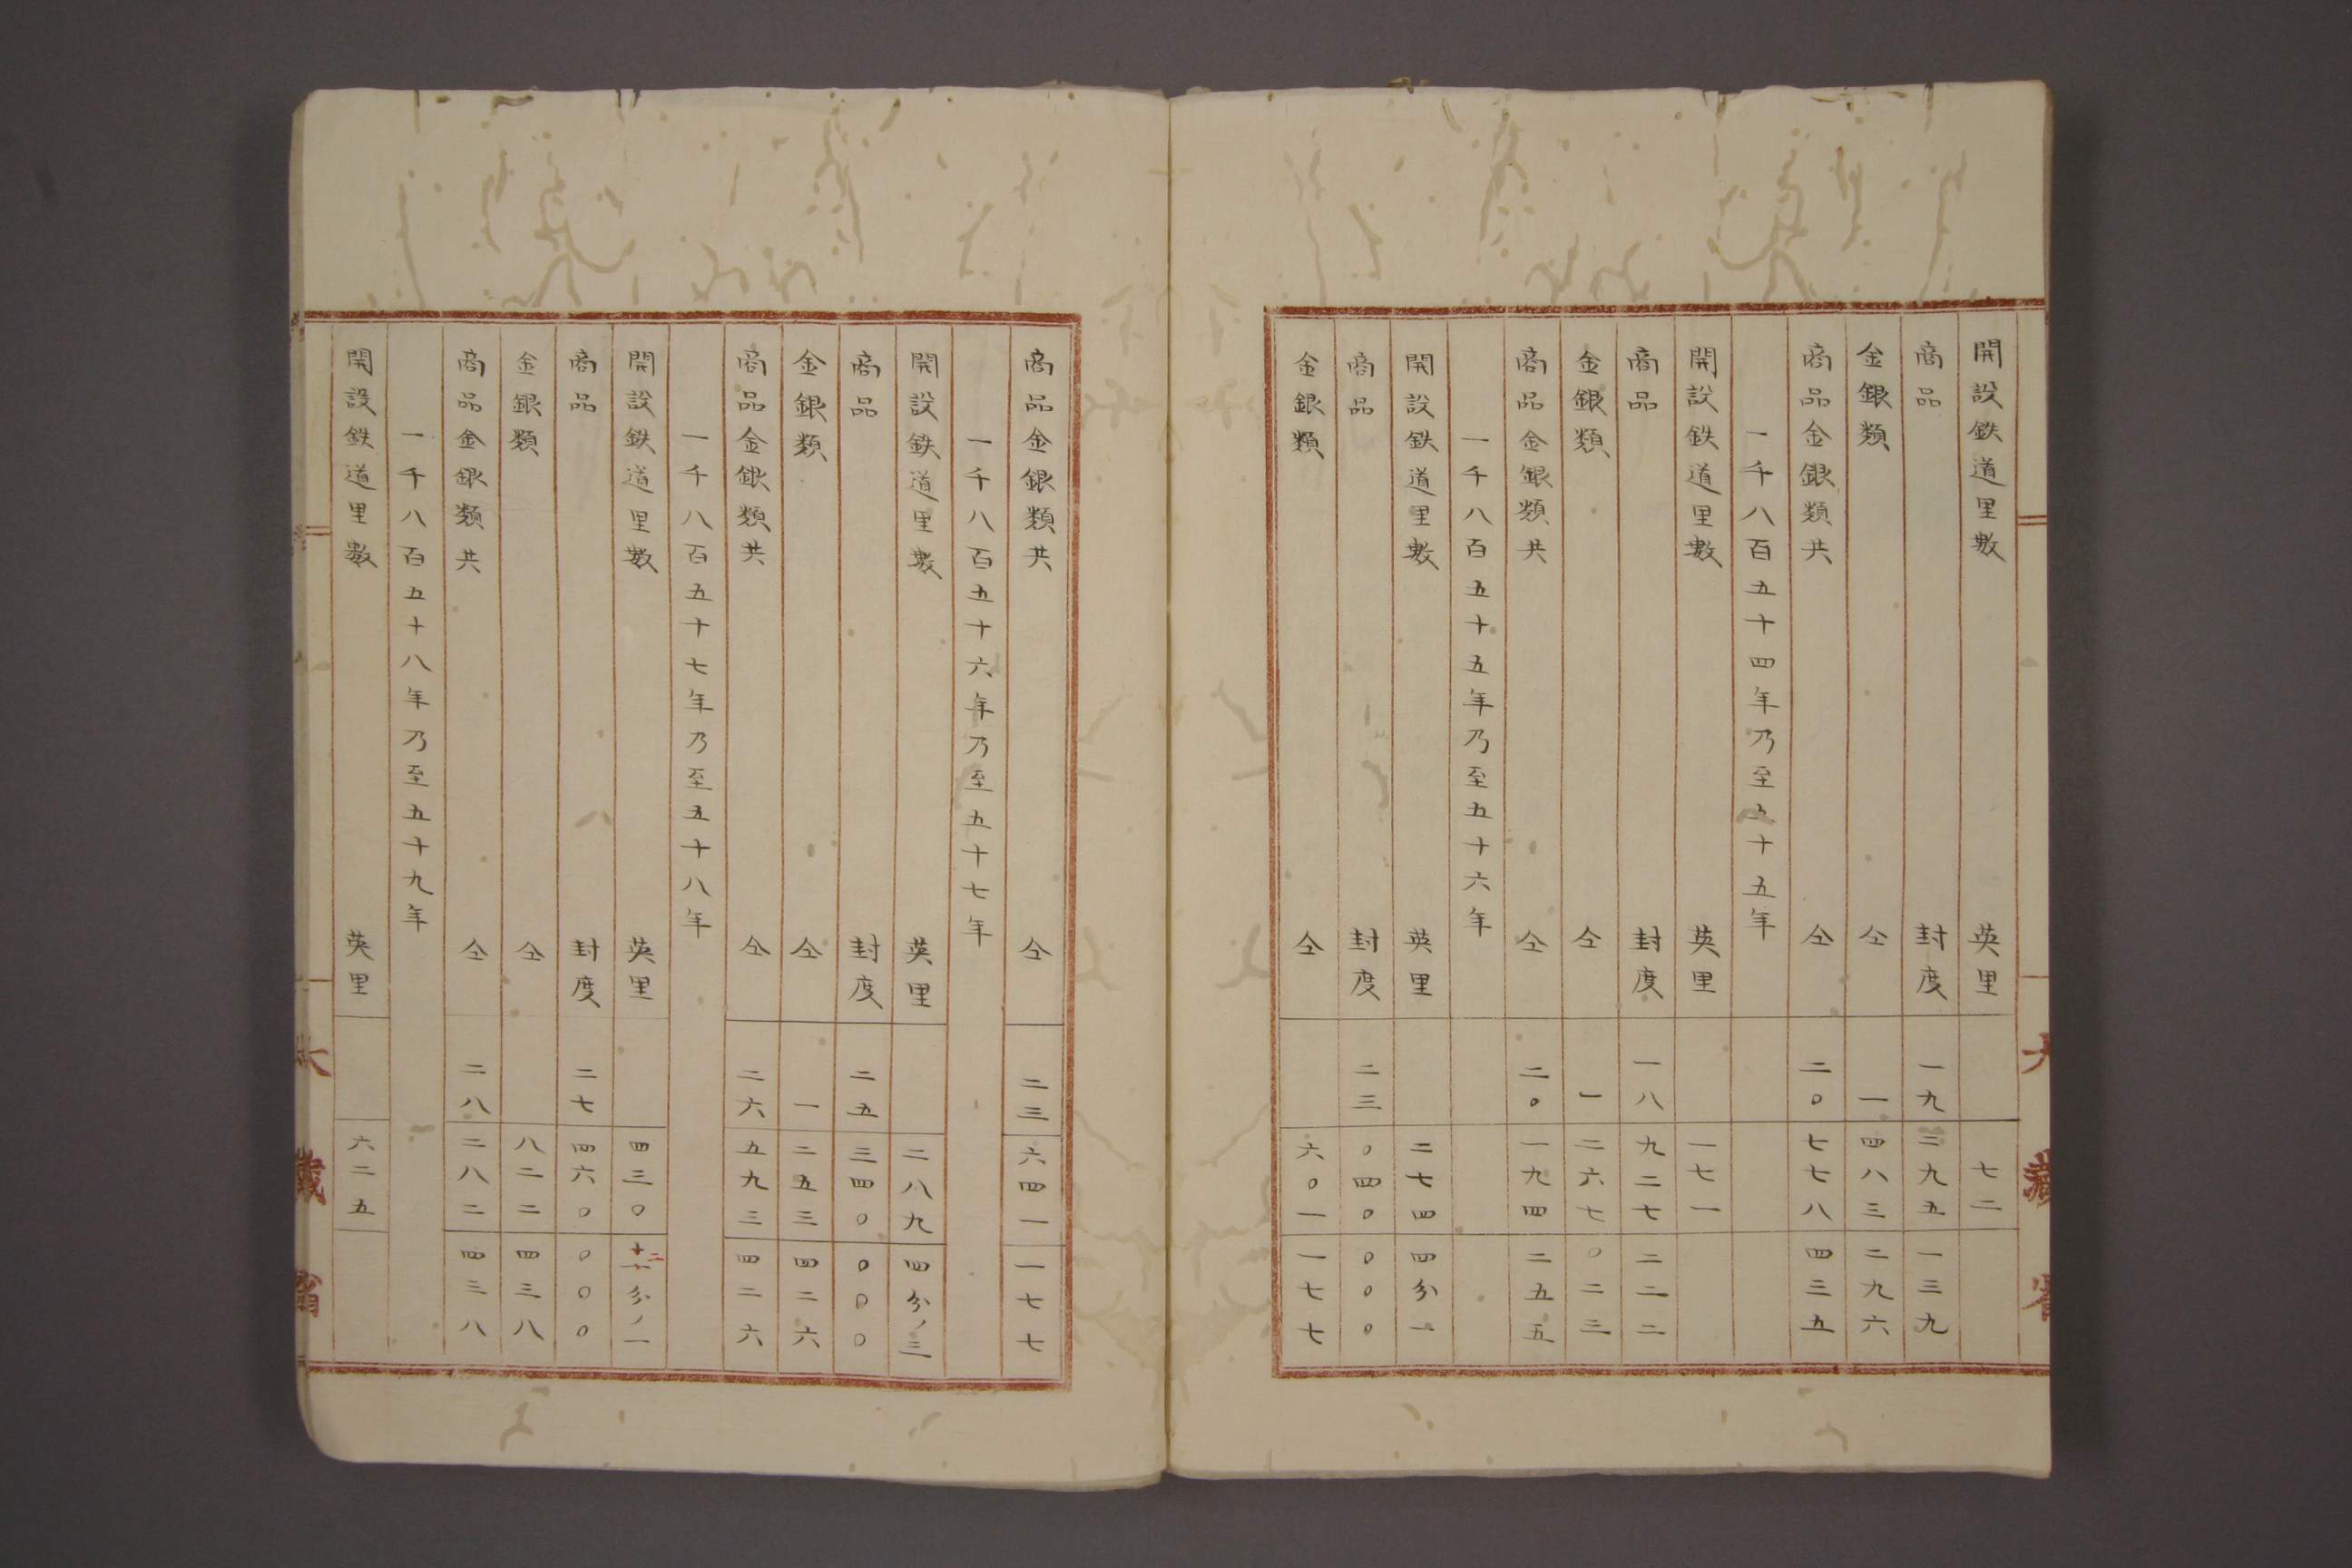 開設鉄道里數 英里 七二
商品 封度 一九 二九五 一三九
金銀類 仝 一 四八三 二九六
商品金銀類共 仝 二〇 七七八 四三五
一千八百五十四年乃至五十五年
開設鉄道里數 英里 一七一
商品 封度 一八 九二七 二二二
金銀類 仝 一 二六七 〇二三
商品金銀類共 仝 二〇 一九四 二五五
一千八百五十五年乃至五十六年
開設鉄道里數 英里 二七四 四分一
商品 封度 二三 〇四〇 〇〇〇
金銀類 仝 六〇一 一七七
大藏省
商品金銀類共 仝 二三 六四一 一七七
一千八百五十六年乃至五十七年
開設鉄道里數 英里 二八九 四分ノ三
商品 封度 二五 三四〇 〇〇〇
金銀類 仝 一 二五三 四二六
商品金銀類共 仝 二六 五九三 四二六
一千八百五十七年乃至五十八年
開設鉄道里數 英里 四三〇 分ノ一
商品 封度 二七 四六〇 〇〇〇
金銀類 仝 八二二 四三八
商品金銀類共 仝 二八 二八二 四三八
一千八百五十八年乃至五十九年
開設鉄道里數 英里 六二五
大藏省